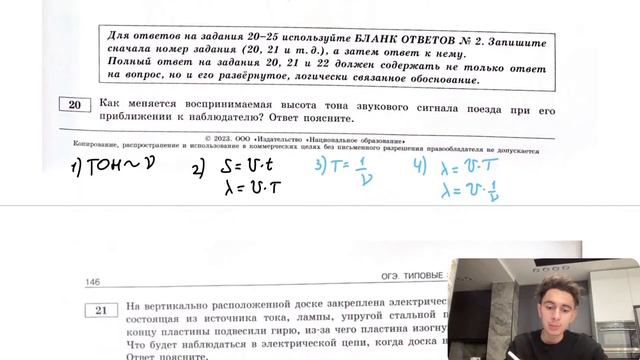 Для ответов на задания 20–25 используйте БЛАНК ОТВЕТОВ № 2. Запишите
сначала номер задания (20, 21 и т. д.), а затем ответ к нему.
Полный ответ на задания 20, 21 и 22 должен содержать не только ответ
на вопрос, но и его развёрнутое, логически связанное обоснование.
20 Как меняется воспринимаемая высота тона звукового сигнала поезда при его
приближении к наблюдателю? Ответ поясните.
© 2023. ООО «Издательство «Национальное образование»
Копирование, распространение и использование в коммерческих целях без письменного разрешения правообладателя не допускается
1) ТОН ~ ν 2) S = υ·t 3) T = 1/ν 4) λ = υ·T
λ = υ·T λ = υ·1/ν
146 ОГЭ. ТИПОВЫЕ
21 На вертикально расположенной доске закреплена электриче
состоящая из источника тока, лампы, упругой стальной п
концу пластины подвесили гирю, из-за чего пластина изогну
Что будет наблюдаться в электрической цепи, когда доска н
Ответ поясните.